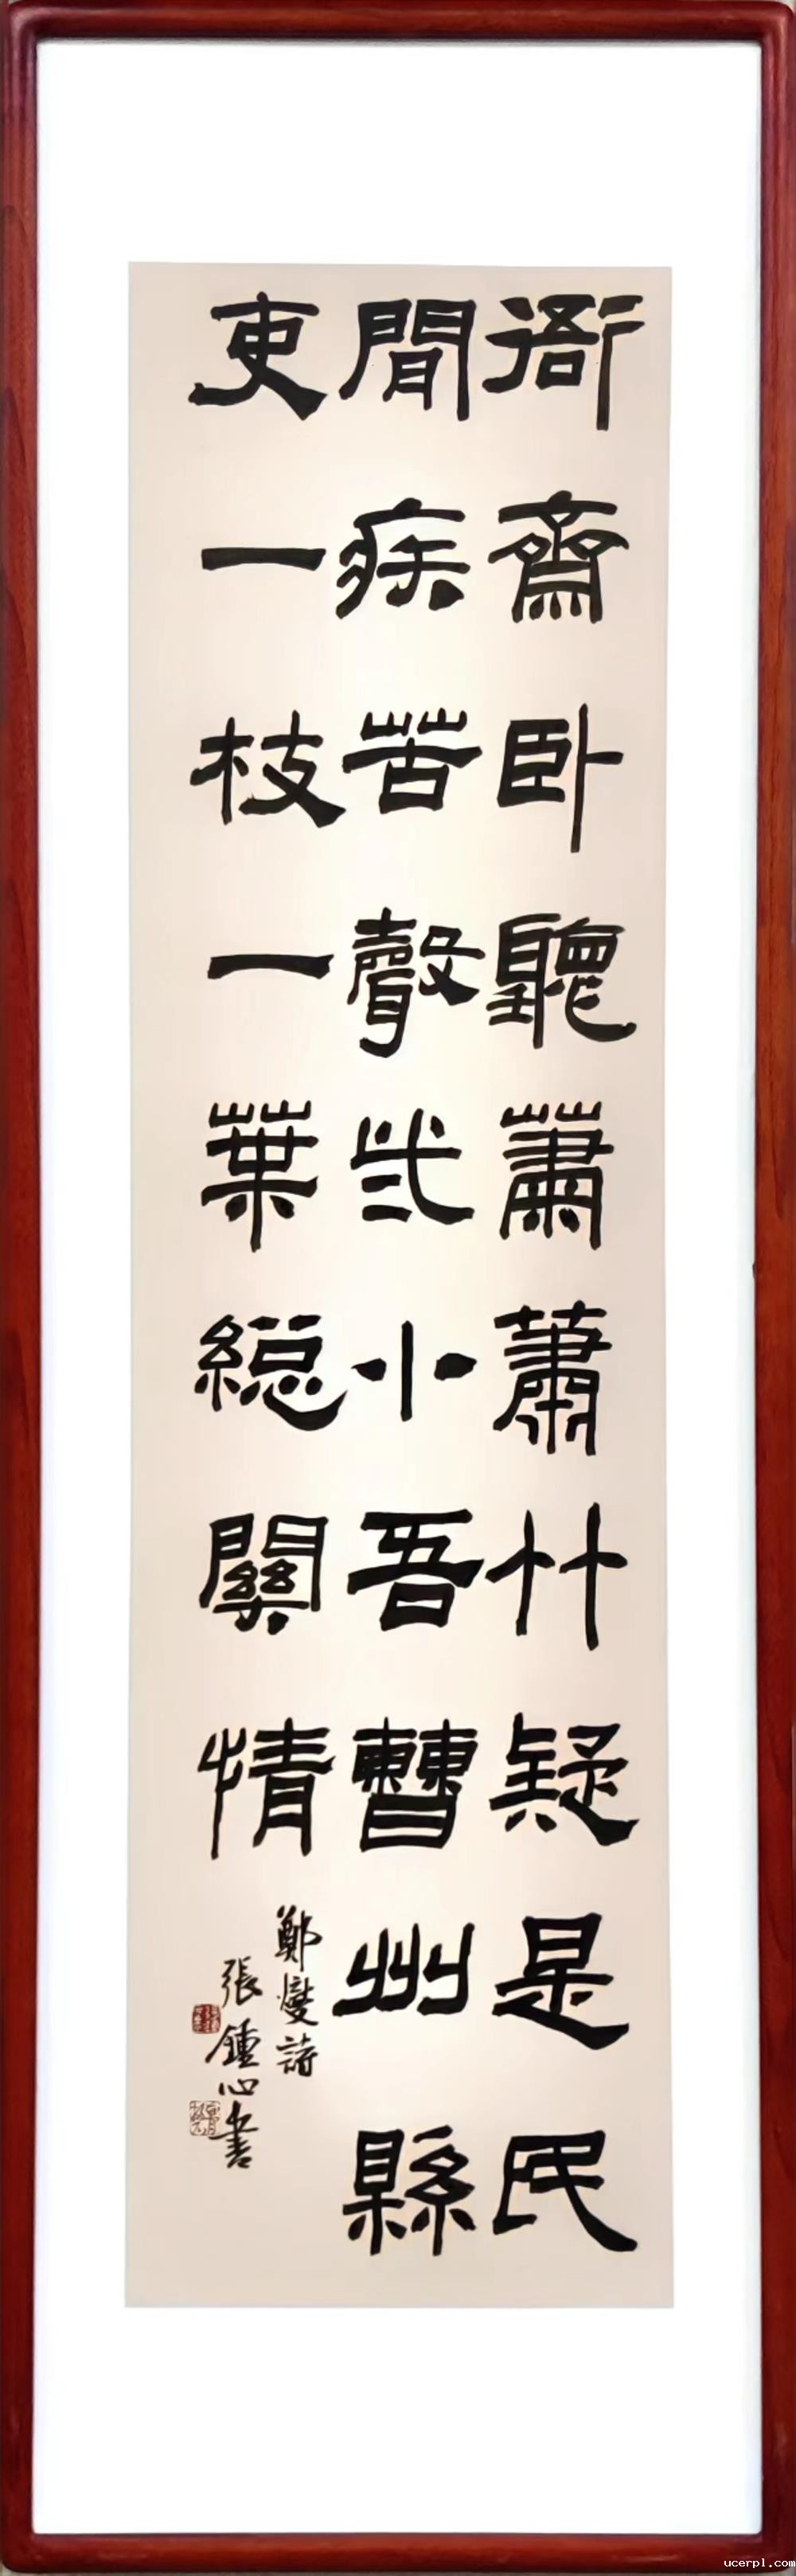 衙齋卧聽蕭蕭竹疑是民
閒疾苦聲些小吾曹州縣
吏一枝一葉緫關情
鄭燮詩
張鍾心書
ucerpl.com